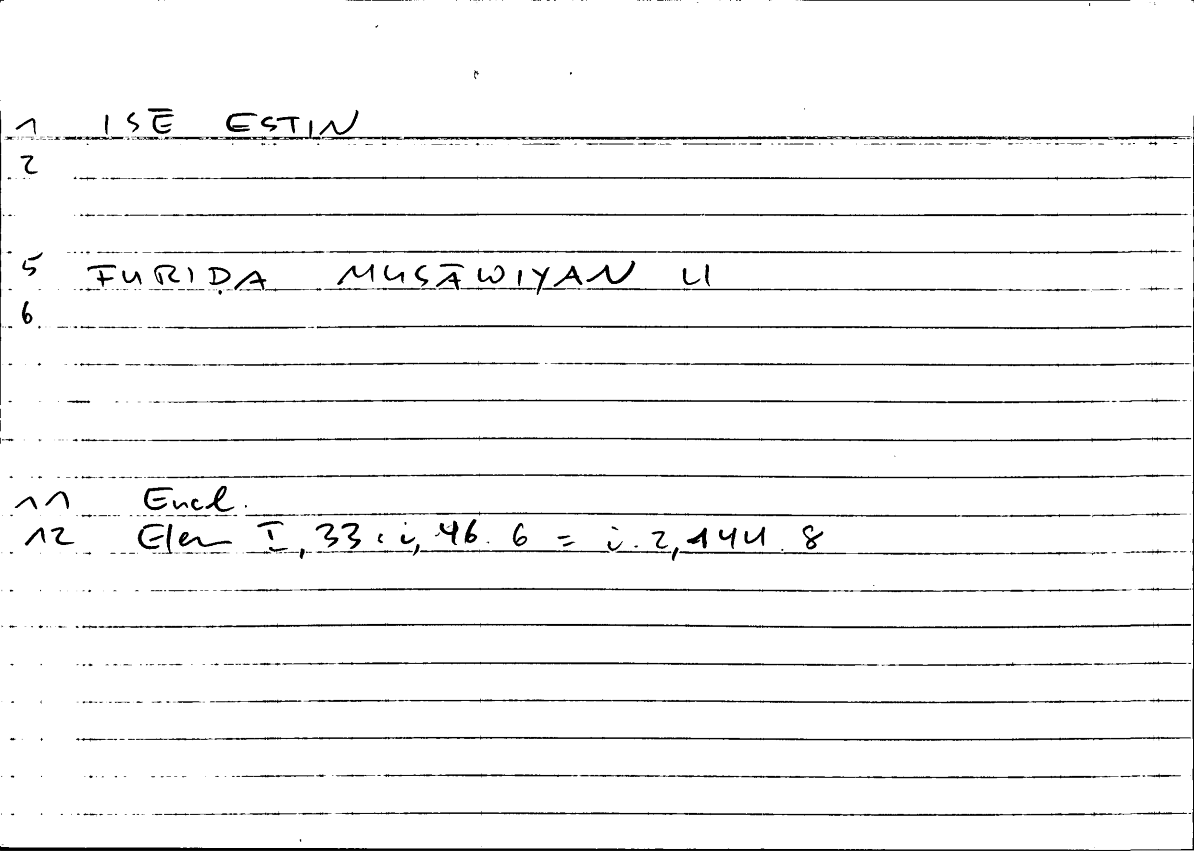 1 ISĒ ESTIN
2
5 FURIḌA MUSĀWIYAN LI
6
11 Eucl.
12 Elem I, 33 : i, 46. 6 = i. 2, 144. 8